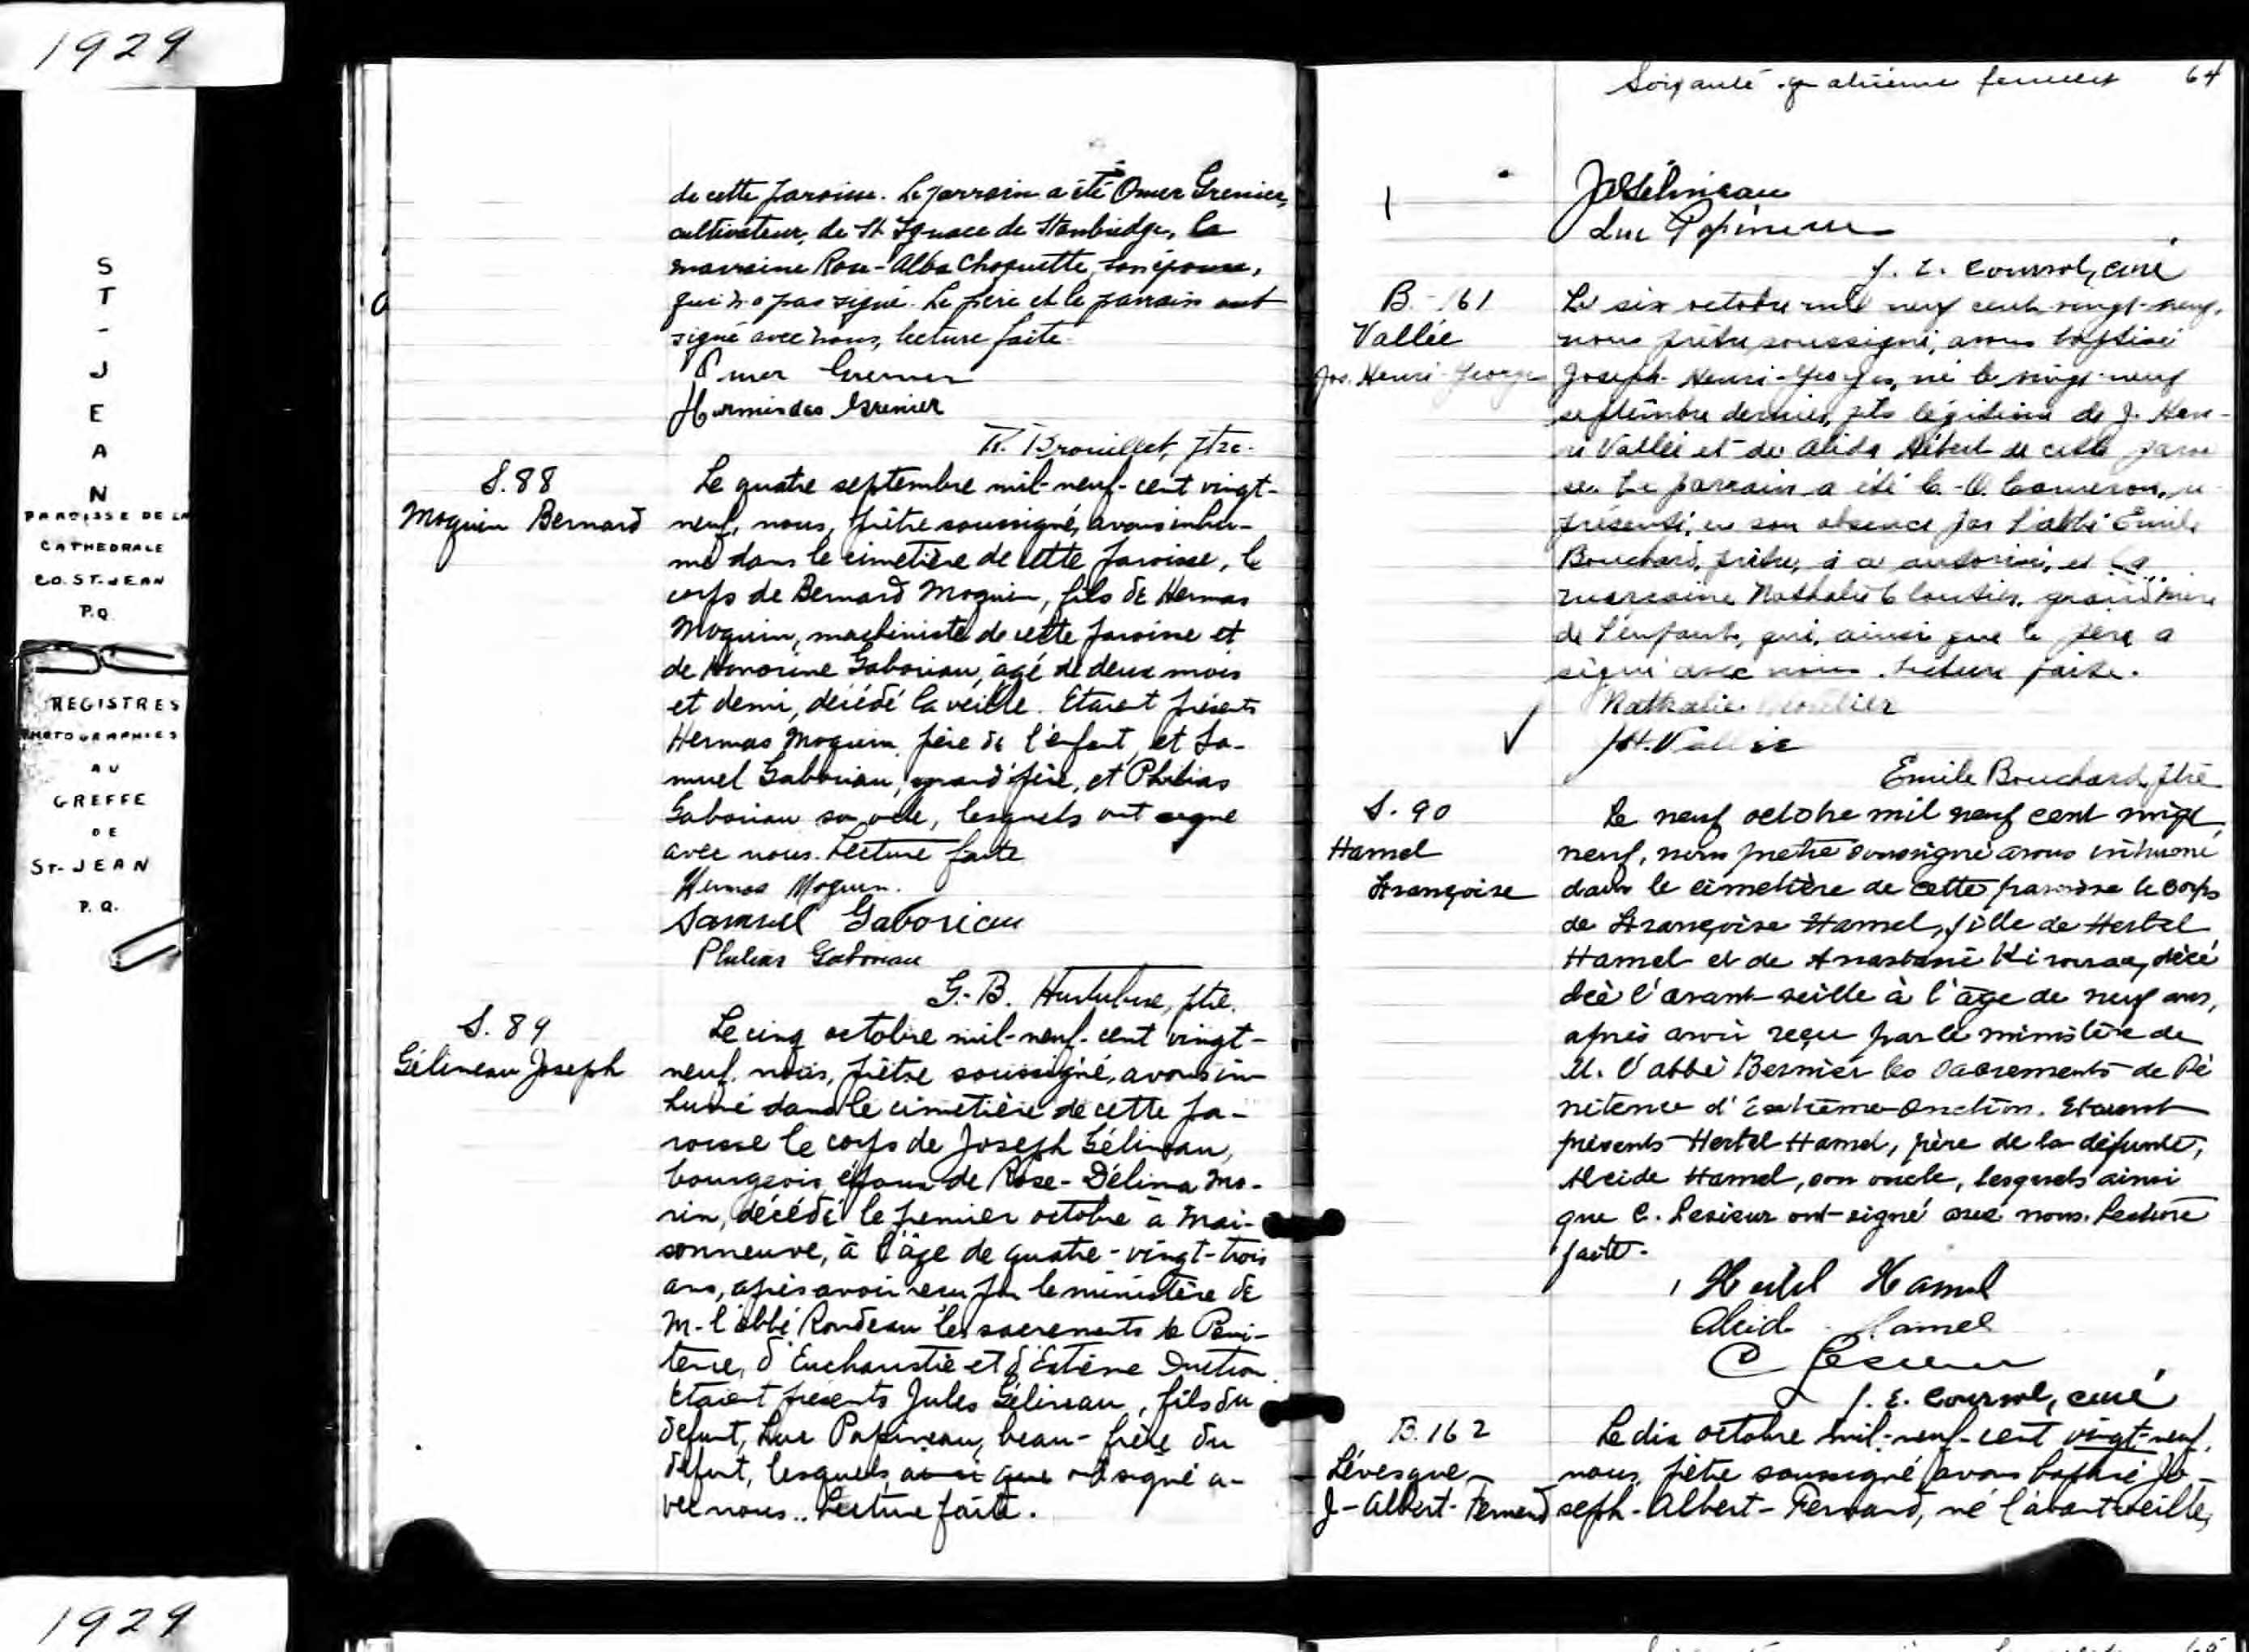 1929
S
T
-
J
E
A
N
PAROISSE DE LA
CATHEDRALE
CO. ST-JEAN
P.Q.
REGISTRES
PHOTOGRAPHIES
AU
GREFFE
DE
ST-JEAN
P.Q.
1929
de cette paroisse. Le parrain a été Omer Grenier,
cultivateur, de St Ignace de Stanbridge, la
marraine Rose-Alba Choquette, son épouse,
qui n'a pas signé. Le père et le parrain ont
signé avec nous, lecture faite.
Omer Grenier
Hormisdas Grenier
Brouillet, ptre.
S. 88
Moquin Bernard
Le quatre septembre mil-neuf-cent vingt-
neuf, nous, prêtre soussigné, avons inhu-
mé dans le cimetière de cette paroisse, le
corps de Bernard Moquin, fils de Hermas
Moquin, machiniste de cette paroisse et
de Honorine Gaboriau, âgé de deux mois
et demi, décédé la veille. Etaient présents
Hermas Moquin père de l'enfant, et Sa-
muel Gaboriau, grand'père, et Philias
Gaboriau son oncle, lesquels ont signé
avec nous. Lecture faite
Hermas Moquin.
Samuel Gaboriau
Philias Gaboriau
G.-B. Hurtubise, ptre.
S. 89
Gélineau Joseph
Le cinq octobre mil-neuf-cent vingt-
neuf, nous, prêtre soussigné, avons in-
humé dans le cimetière de cette pa-
roisse le corps de Joseph Gélineau,
bourgeois, époux de Rose-Délima Mo-
rin, décédé le premier octobre à Mai-
sonneuve, à l'âge de quatre-vingt-trois
ans, après avoir reçu par le ministère de
M. l'abbé Rondeau les sacrements de Péni-
tence, d'Eucharistie et d'Extême Onction.
Etaient présents Jules Gélineau, fils du
défunt, Luc Papineau, beau-frère du
défunt, lesquels, ainsi que ont signé a-
vec nous.. Lecture faite.
Soixante-quatrième feuillet 64
Gélineau
Luc Papineau
J. E. Coursol, curé
B.-161
Vallée
Jos. Henri-Georges
Le six octobre mil neuf cent vingt-neuf,
nous prêtre soussigné, avons baptisé
Joseph-Henri-Georges, né le vingt-neuf
septembre dernier, fils légitime de J. Hen-
ri Vallée et de Alida Hébert de cette parois
se. Le parrain a été C.-O. Cameron, re
présenté, en son absence par l'abbé Emile
Bouchard, prêtre, à ce autorisé, et la
marraine Nathalie Cloutier, grand'mère
de l'enfant, qui, ainsi que le père a
signé avec nous. Lecture faite.
Nathalie Cloutier
J.H. Vallée
Emile Bouchard, ptre
S. 90
Hamel
Françoise
Le neuf octobre mil neuf cent vingt
neuf, nous prêtre soussigné avons inhumé
dans le cimetière de cette paroisse le corps
de Françoise Hamel, fille de Hertel
Hamel et de Anastasie Kirouac, décé
dée l'avant-veille à l'âge de neuf ans,
après avoir reçu par le ministère de
M. l'abbé Bernier les Sacrements de Pé
nitence d'Extrême-Onction. Etaient
présents Hertel Hamel, père de la défunte,
Alcide Hamel, son oncle, lesquels ainsi
que C. Lesieur ont signé avec nous. Lecture
faite.
Hertel Hamel
Alcide Hamel
C Lesieur
J. E. Coursol, curé
B. 162
Lévesque
J-Albert-Fernand
Le dix octobre mil-neuf-cent vingt-neuf,
nous, prêtre soussigné avons baptisé Jo-
seph-Albert-Fernand, né l'avant-veille,